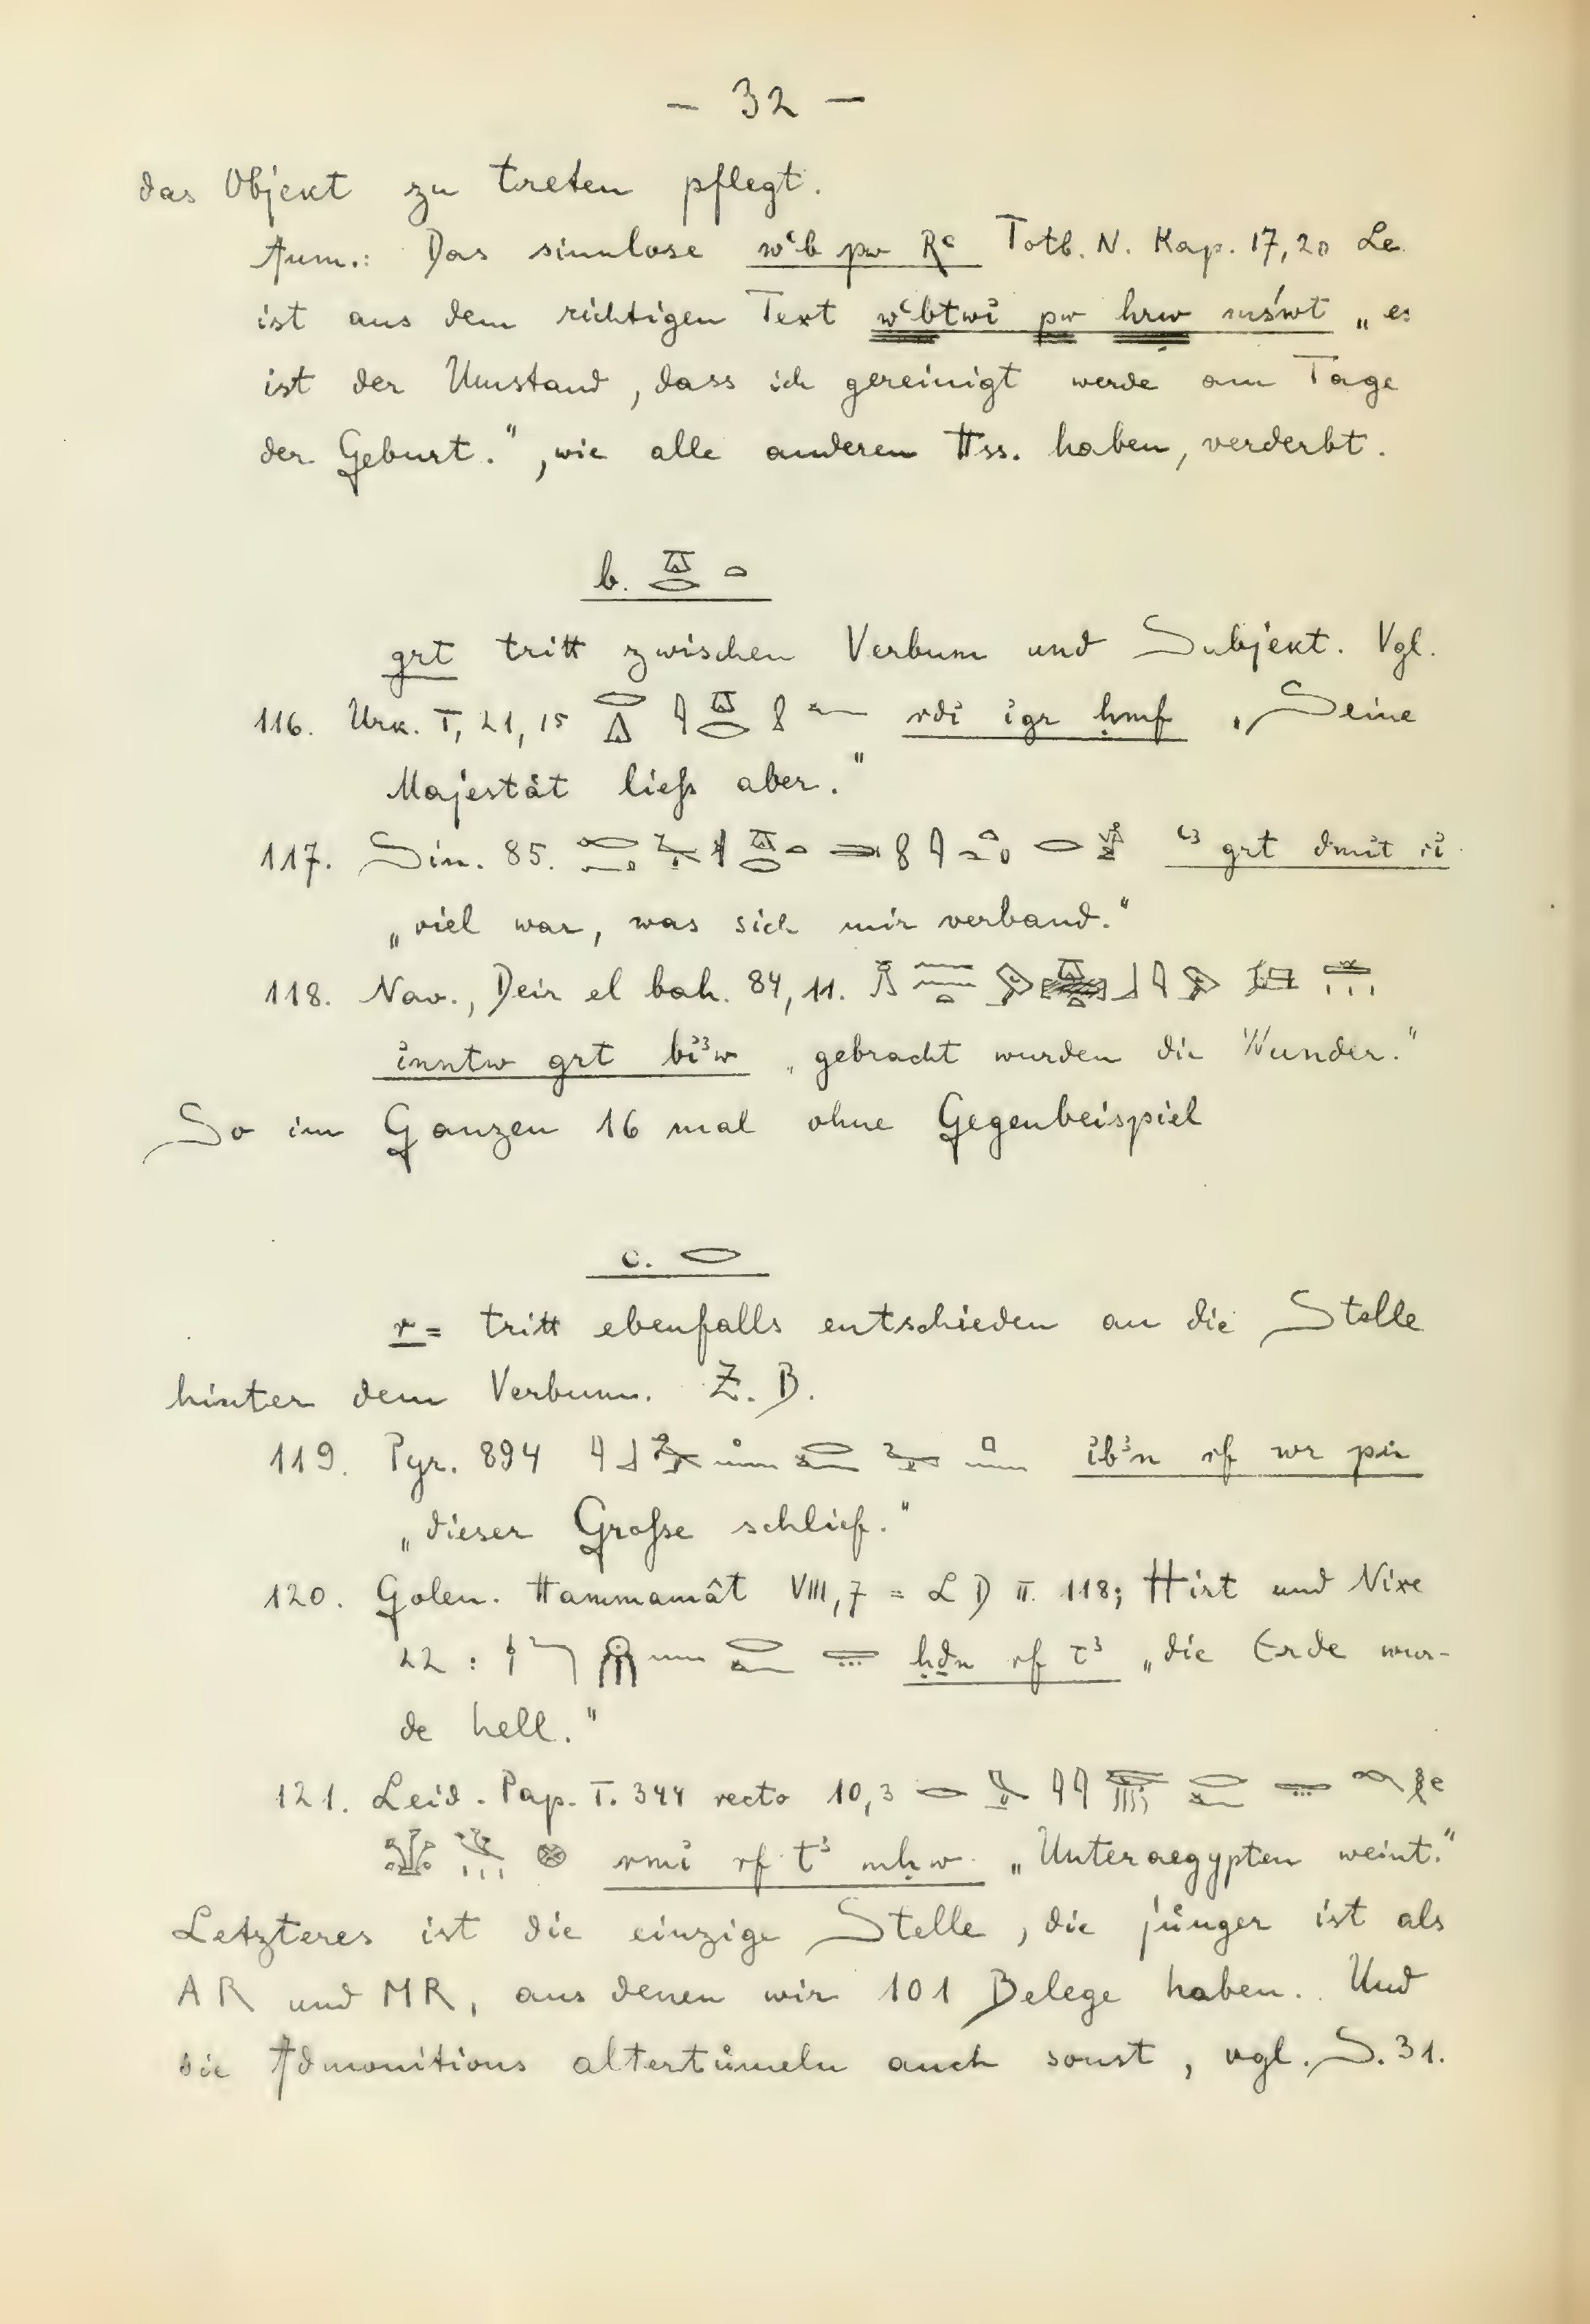 - 32 -
das Objekt zu treten pflegt.
Anm.: Das sinnlose wꜥb pw Rꜥ Totb. N. Kap. 17,20 Le
ist aus dem richtigen Text wꜥbtwi̓ pw hrw mśwt „es
ist der Umstand, dass ich gereinigt werde am Tage
der Geburt.", wie alle anderen Hss. haben, verderbt.
b. 𓎼𓂋 𓏏
grt tritt zwischen Verbum und Subjekt. Vgl.
116. Urk. I, 21, 15 𓂋𓏙 𓇋𓎼𓂋 𓍛𓆑 rdi̓ i̓gr ḥmf „Seine
Majestät ließ aber."
117. Sin. 85. ꜥꜣ grt dmi̓t ri̓
„viel war, was sich mir verband."
118. Nav., Deir el bah. 84, 11.
i̓nntw grt bi̓ꜣw „gebracht wurden die Wunder."
So im Ganzen 16 mal ohne Gegenbeispiel
c. 𓂋
r= tritt ebenfalls entschieden an die Stelle
hinter dem Verbum. Z. B.
119. Pyr. 894 𓇋𓃀 𓈖 𓂋𓆑 𓅨 𓊪𓈖 i̓bꜣn rf wr pn
„dieser Große schlief."
120. Golen. Hammamât VIII, 7 = L D II. 118; Hirt und Nixe
22 : 𓌉 𓈖 𓂋𓆑 𓇾 ḥḏn rf tꜣ „die Erde wur-
de hell."
121. Leid. Pap. I. 344 recto 10,3 𓂋 𓅓 𓇋𓇋 𓂋𓆑 𓇾
rmi̓ rf tꜣ mḥw „Unteraegypten weint."
Letzteres ist die einzige Stelle, die jünger ist als
AR und MR, aus denen wir 101 Belege haben. Und
die Admonitions altertümeln auch sonst, vgl. S. 31.